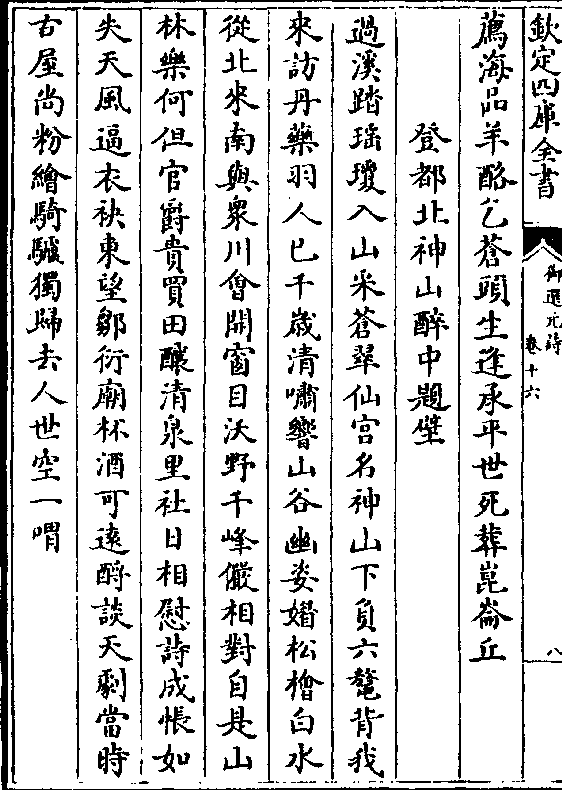 欽定四庫全書
御選元詩
卷十六
八
薦海品羊酪乞蒼頭生逢承平世死葬崑崙丘
登都北神山醉中題壁
過溪踏瑶瓊入山米蒼翠仙宫名神山下負六鼇背我
來訪丹藥羽人已千歳清嘯響山谷幽姿媚松檜白水
從北來南與衆川會開窗目沃野千峰儼相對自是山
林樂何但官爵貴買田釀清泉里社日相慰詩成悵如
失天風逼衣袂東望鄒衍廟杯酒可遠酹談天劇當時
古屋尚粉繪騎驢獨歸去人世空一喟